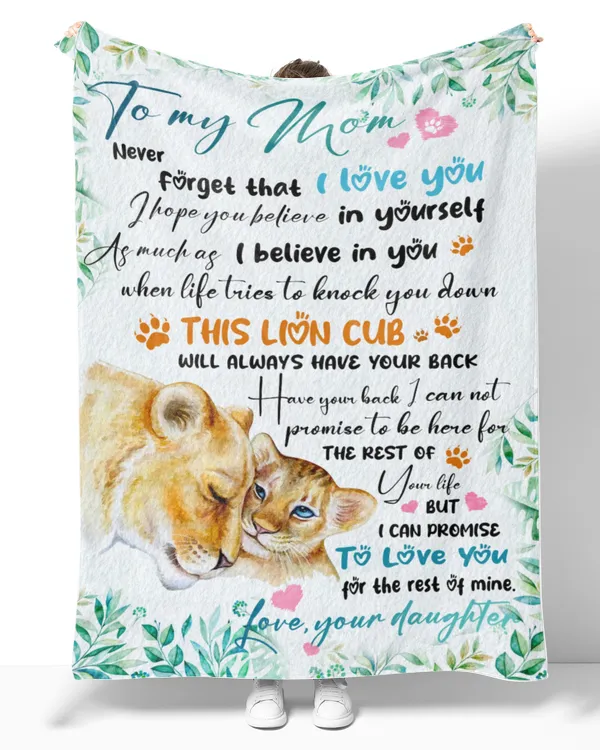 To my Mom
Never
forget that I love you
I hope you believe in yourself
As much as I believe in you
when life tries to knock you down
THIS LION CUB
WILL ALWAYS HAVE YOUR BACK
Have your back I can not
promise to be here for
THE REST OF
Your life
BUT
I CAN PROMISE
TO LOVE YOU
for the rest of mine.
Love, your daughter